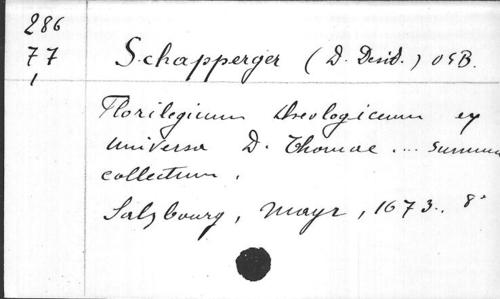 286
77
1
Schapperger (D. Desid.) OSB.
Florilegium theologicum ex
universa D. Thomae ... summa
collectum.
Salzbourg, Mayr, 1673. 8°